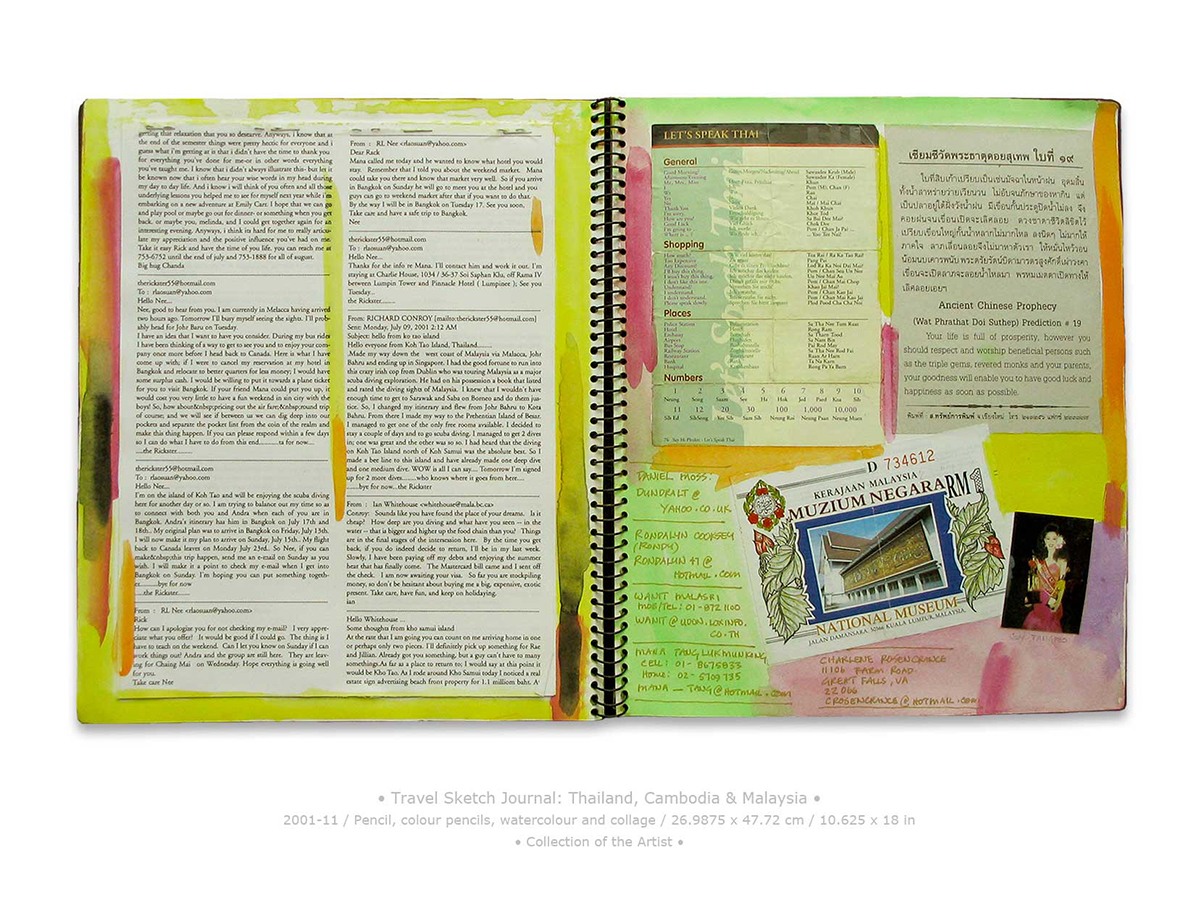 getting that relaxation that you so deserve. Anyways, i know that at
the end of the semester things were pretty hectic for everyone and i
guess what i'm getting at is that i didn't have the time to thank you
for everything you've done for me-or in other words everything
you've taught me. I know that i didn't always illustrate this- but let it
be known now that i often hear your wise words in my head during
my day to day life. And i know i will think of you often and all those
underlying lessons you helped me to see for myself next year while i'm
embarking on a new adventure at Emily Carr. I hope that we can go
and play pool or maybe go out for dinner- or something when you get
back, or maybe you, melinda, and I could get together again for an
interesting evening. Anyways, i think its hard for me to really articu-
late my appreciation and the positive influence you've had on me.
Take it easy Rick and have the time of your life, you can reach me at
753-6752 until the end of july and 753-1888 for all of august.
Big hug Chanda
therickster55@hotmail.com
To : rlaosuan@yahoo.com
Hello Nee...
Nee, good to hear from you. I am currently in Melacca having arrived
two hours ago. Tomorrow I'll busy myself seeing the sights. I'll prob-
ably head for Joho Baru on Tuesday.
I have an idea that I want to have you consider. During my bus rides
I have been thinking of a way to get to see you and to enjoy your com-
pany once more before I head back to Canada. Here is what I have
come up with; if I were to cancel my reservation at my hotel in
Bangkok and relocate to better quarters for less money; I would have
some surplus cash. I would be willing to put it towards a plane ticket
for you to visit Bangkok. If your friend Mana could put you up, it
would cost you very little to have a fun weekend in sin city with the
boys! So, how about&nbsp;pricing out the air fare;&nbsp;round trip
of course; and we will see if between us we can dig deep into our
pockets and separate the pocket lint from the coin of the realm and
make this thing happen. If you can please respond within a few days
so I can do what I have to do from this end...........ta for now....
....the Rickster....
therickster55@hotmail.com
To : rlaosuan@yahoo.com
Hello Nee...
I'm on the island of Koh Tao and will be enjoying the scuba diving
here for another day or so. I am trying to balance out my time so as
to connect with both you and Andra when each of you are in
Bangkok. Andra's itinerary has him in Bangkok on July 17th and
18th.. My original plan was to arrive in Bangkok on Friday, July 13th.
I will now make it my plan to arrive on Sunday, July 15th.. My flight
back to Canada leaves on Monday July 23rd.. So Nee, if you can
make&nbsp;this trip happen, send me an e-mail on Sunday as you
wish. I will make it a point to check my e-mail when I get into
Bangkok on Sunday. I'm hoping you can put something togeth-
er.........bye for now
....the Rickster....
From : RL Nee <rlaosuan@yahoo.com>
Rick
How can I apologize you for not checking my e-mail? I very appre-
ciate what you offer! It would be good if I could go. The thing is I
have to teach on the weekend. Can I let you know on Sunday if I can
work things out? Andra and the group are still here. They are leav-
ing for Chaing Mai on Wednesday. Hope everything is going well
for you.
Take care Nee
From : RL Nee <rlaosuan@yahoo.com>
Dear Rack
Mana called me today and he wanted to know what hotel you would
stay. Remember that I told you about the weekend market. Mana
could take you there and know that market very well. So if you arrive
in Bangkok on Sunday he will go to meet you at the hotel and you
guys can go to weekend market after that if you want to do that.
By the way I will be in Bangkok on Tuesday 17. See you soon,
Take care and have a safe trip to Bangkok.
Nee
therickster55@hotmail.com
To : rlaosuan@yahoo.com
Hello Nee...
Thanks for the info re Mana. I'll contact him and work it out. I'm
staying at Charlie House, 1034 / 36-37 Soi Saphan Klu, off Rama IV
between Lumpin Tower and Pinnacle Hotel ( Lumpinee ); See you
Tuesday...
the Rickster........
From: RICHARD CONROY [mailto:therickster55@hotmail.com]
Sent: Monday, July 09, 2001 2:12 AM
Subject: hello from ko tao island
Hello everyone from Koh Tao Island, Thailand.......
.Made my way down the west coast of Malaysia via Malacca, Johr
Bahru and ending up in Singapore. I had the good fortune to run into
this crazy irish cop from Dublin who was touring Malaysia to a major
scuba diving exploration. He had on his possession a book that listed
and rated the diving sights of Malaysia. I knew that I wouldn't have
enough time to get to Sarawak and Sabu on Borneo and do them jus-
tice. So, I changed my itinerary and flew from Johr Bahru to Kota
Bahru. From there I made my way to the Prethentian Island of Besek.
I managed to get one of the only free rooms available. I decided to
stay a couple of days and to go scuba diving. I managed to get 2 dives
in; one was great and the other was so so. I had heard that the diving
on Koh Tao Island north of Koh Samui was the absolute best. So I
made a bee line to this island and have already made one deep dive
and one medium dive. WOW is all I can say.... Tomorrow I'm signed
up for 2 more dives.......who knows where it goes from here....
.....bye for now...the Rickster
From : Ian Whitehouse <whitehouse@mala.bc.ca>
Conroy: Sounds like you have found the place of your dreams. Is it
cheap? How deep are you diving and what have you seen -- in the
water - that is bigger and higher up the food chain than you? Things
are in the final stages of the intersession here. By the time you get
back, if you do indeed decide to return, I'll be in my last week.
Slowly, I have been paying off my debts and enjoying the summer
heat that has finally come. The Mastercard bill came and I sent off
the check. I am now awaiting your visa. So far you are stockpiling
money, so don't be hesitant about buying me a big, expensive, exotic
present. Take care, have fun, and keep on holidaying.
ian
Hello Whitehouse ...
Some thoughts from kho samui island
At the rate that I am going you can count on me arriving home in one
or perhaps only two pieces. I'll definitely pick up something for Rae
and Jillian. Already got you something, but a guy can't have to many
somethings.As far as a place to return to; I would say at this point it
would be Kho Tao. As I rode around Kho Samui today I noticed a real
estate sign advertising beach front property for 1.1 million baht. A
LET'S SPEAK THAI
General
Shopping
Places
Numbers
1 2 3 4 5 6 7 8 9 10
11 12 20 30 100 1,000 10,000
76 Say Hi Phuket : Let's Speak Thai
เซียมซีวัดพระธาตุดอยสุเทพ ใบที่ ๑๙
Ancient Chinese Prophecy
(Wat Phrathat Doi Suthep) Prediction # 19
Your life is full of prosperity, however you
should respect and worship beneficial persons such
as the triple gems, revered monks and your parents,
your goodness will enable you to have good luck and
happiness as soon as possible.
D 734612
KERAJAAN MALAYSIA
MUZIUM NEGARA RM1
NATIONAL MUSEUM
JALAN DAMANSARA, 50566 KUALA LUMPUR, MALAYSIA
DANIEL MOSS:
DUNDRALT @
YAHOO.CO.UK
RONDALYN COOKSEY
(RONDY)
RONDALYN 47 @
HOTMAIL.COM
WANIT MALASRI
MOB/TEL: 01-872 1100
WANIT @ UDON.LOXINFO.
CO.TH
MANA TANGLUKMUNKING
CELL: 01-8675833
HOME: 02-5709735
MANA_TANG@HOTMAIL.COM
CHARLENE ROSENCRANCE
11106 FARM ROAD
GREAT FALLS, VA
22066
CROSENCRANCE@HOTMAIL.COM
• Travel Sketch Journal: Thailand, Cambodia & Malaysia •
2001-11 / Pencil, colour pencils, watercolour and collage / 26.9875 x 47.72 cm / 10.625 x 18 in
• Collection of the Artist •